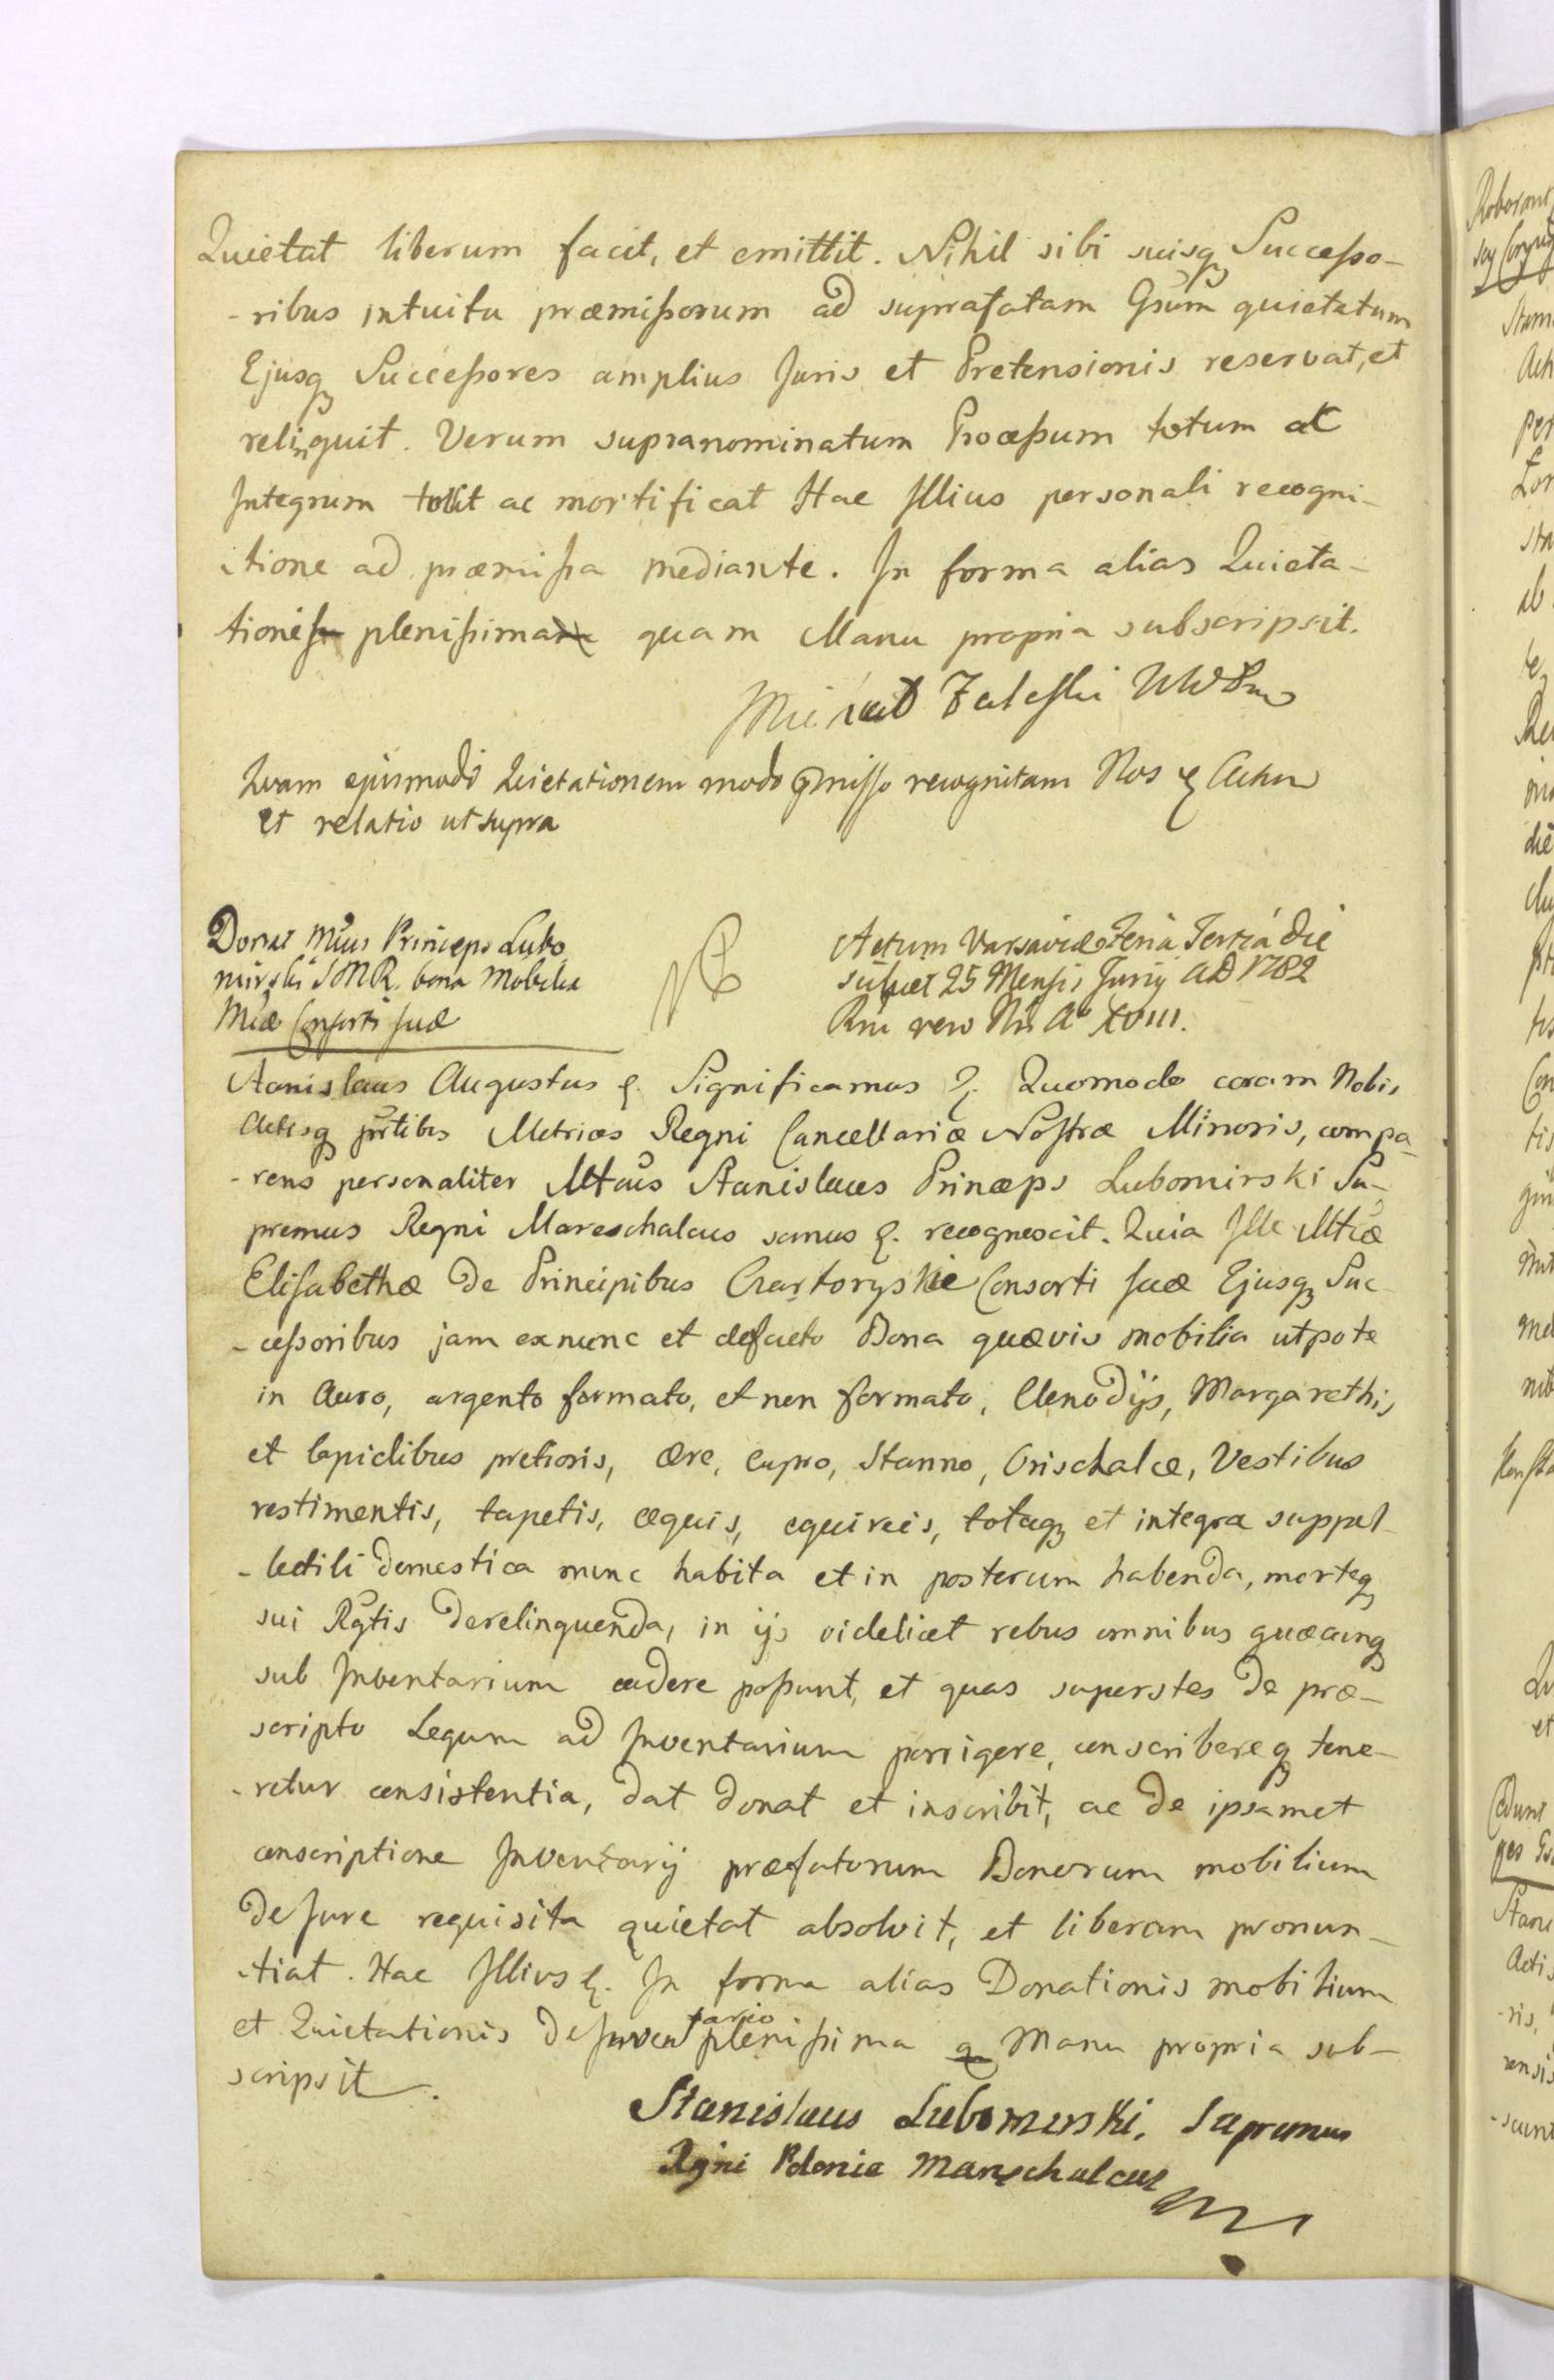 Quietat liberum facit, et emittit. Nihil sibi suisq Succeßo-
-ribus intuitu præmißorum ad suprafatam Gsum quietatum
Ejusq Succeßores amplius Juris et Pretensionis reservat, et
relinquit. Verum supranominatum Proceßum totum ac
Integrum tollit ac mortificat Hac Illius personali recogni-
-tione ad præmißa mediante. In forma alias Quieta-
tionis plenißima quam Manu propria subscripsit.
Quam ejusmodi Quietationem modo pmisso recognitam Nos
et relatio ut supra
Donat Mcus Princeps Lubo
mirski SMR. bona Mobilia
Mcæ Consorti suæ
Actum Varsaviæ Feria Tertiâ die
scilicet 25 Mensis Junij AD 1782
Rni vero Nri Aº XVIII.
Stanislaus Augustus &. Significamus &. Quomodo coram Nobis
Actisq pntibus Metrices Regni Cancellariæ Nostræ Minoris, compa-
-rens personaliter Mtcus Stanislaus Princeps Lubomirski Su-
premus Regni Mareschalcus sanus &. recognoscit. Quia Ille Mtcæ
Elisabethæ de Principibus Czartoryskie Consorti suæ Ejusq Suc
-ceßoribus jam exnunc et defacto Bona quævis mobilia utpote
in Auro, argento formato, et non formato, Clenodijs, Margarethis
et lapidibus pretiosis, Ære, Cupro, Stanno, Orischalce, Vestibus
vestimentis, tapetis, æquis, equireis, totaq et integra suppel-
-lectili domestica nunc habita et in posterum habenda, morteq
sui Rgtis derelinquenda, in ijs videlicet rebus omnibus quæcunq
sub Inventarium cadere poßunt, et quas superstes de præ-
scripto Legum ad Inventarium porrigere, conscribereq tene-
-retur consistentia, dat donat et inscribit, ac de ipsamet
conscriptione Inventarij præfatorum Bonorum mobilium
de Jure requisita quietat absolvit, et liberam pronun-
-tiat. Hac Illius &. In forma alias Donationis mobilium
et Quietationis de Inventario plenißima q Manu propria sub-
scripsit.
Stanislaus Lubomirski, Supremus
Rgni Polonie Marschalcus